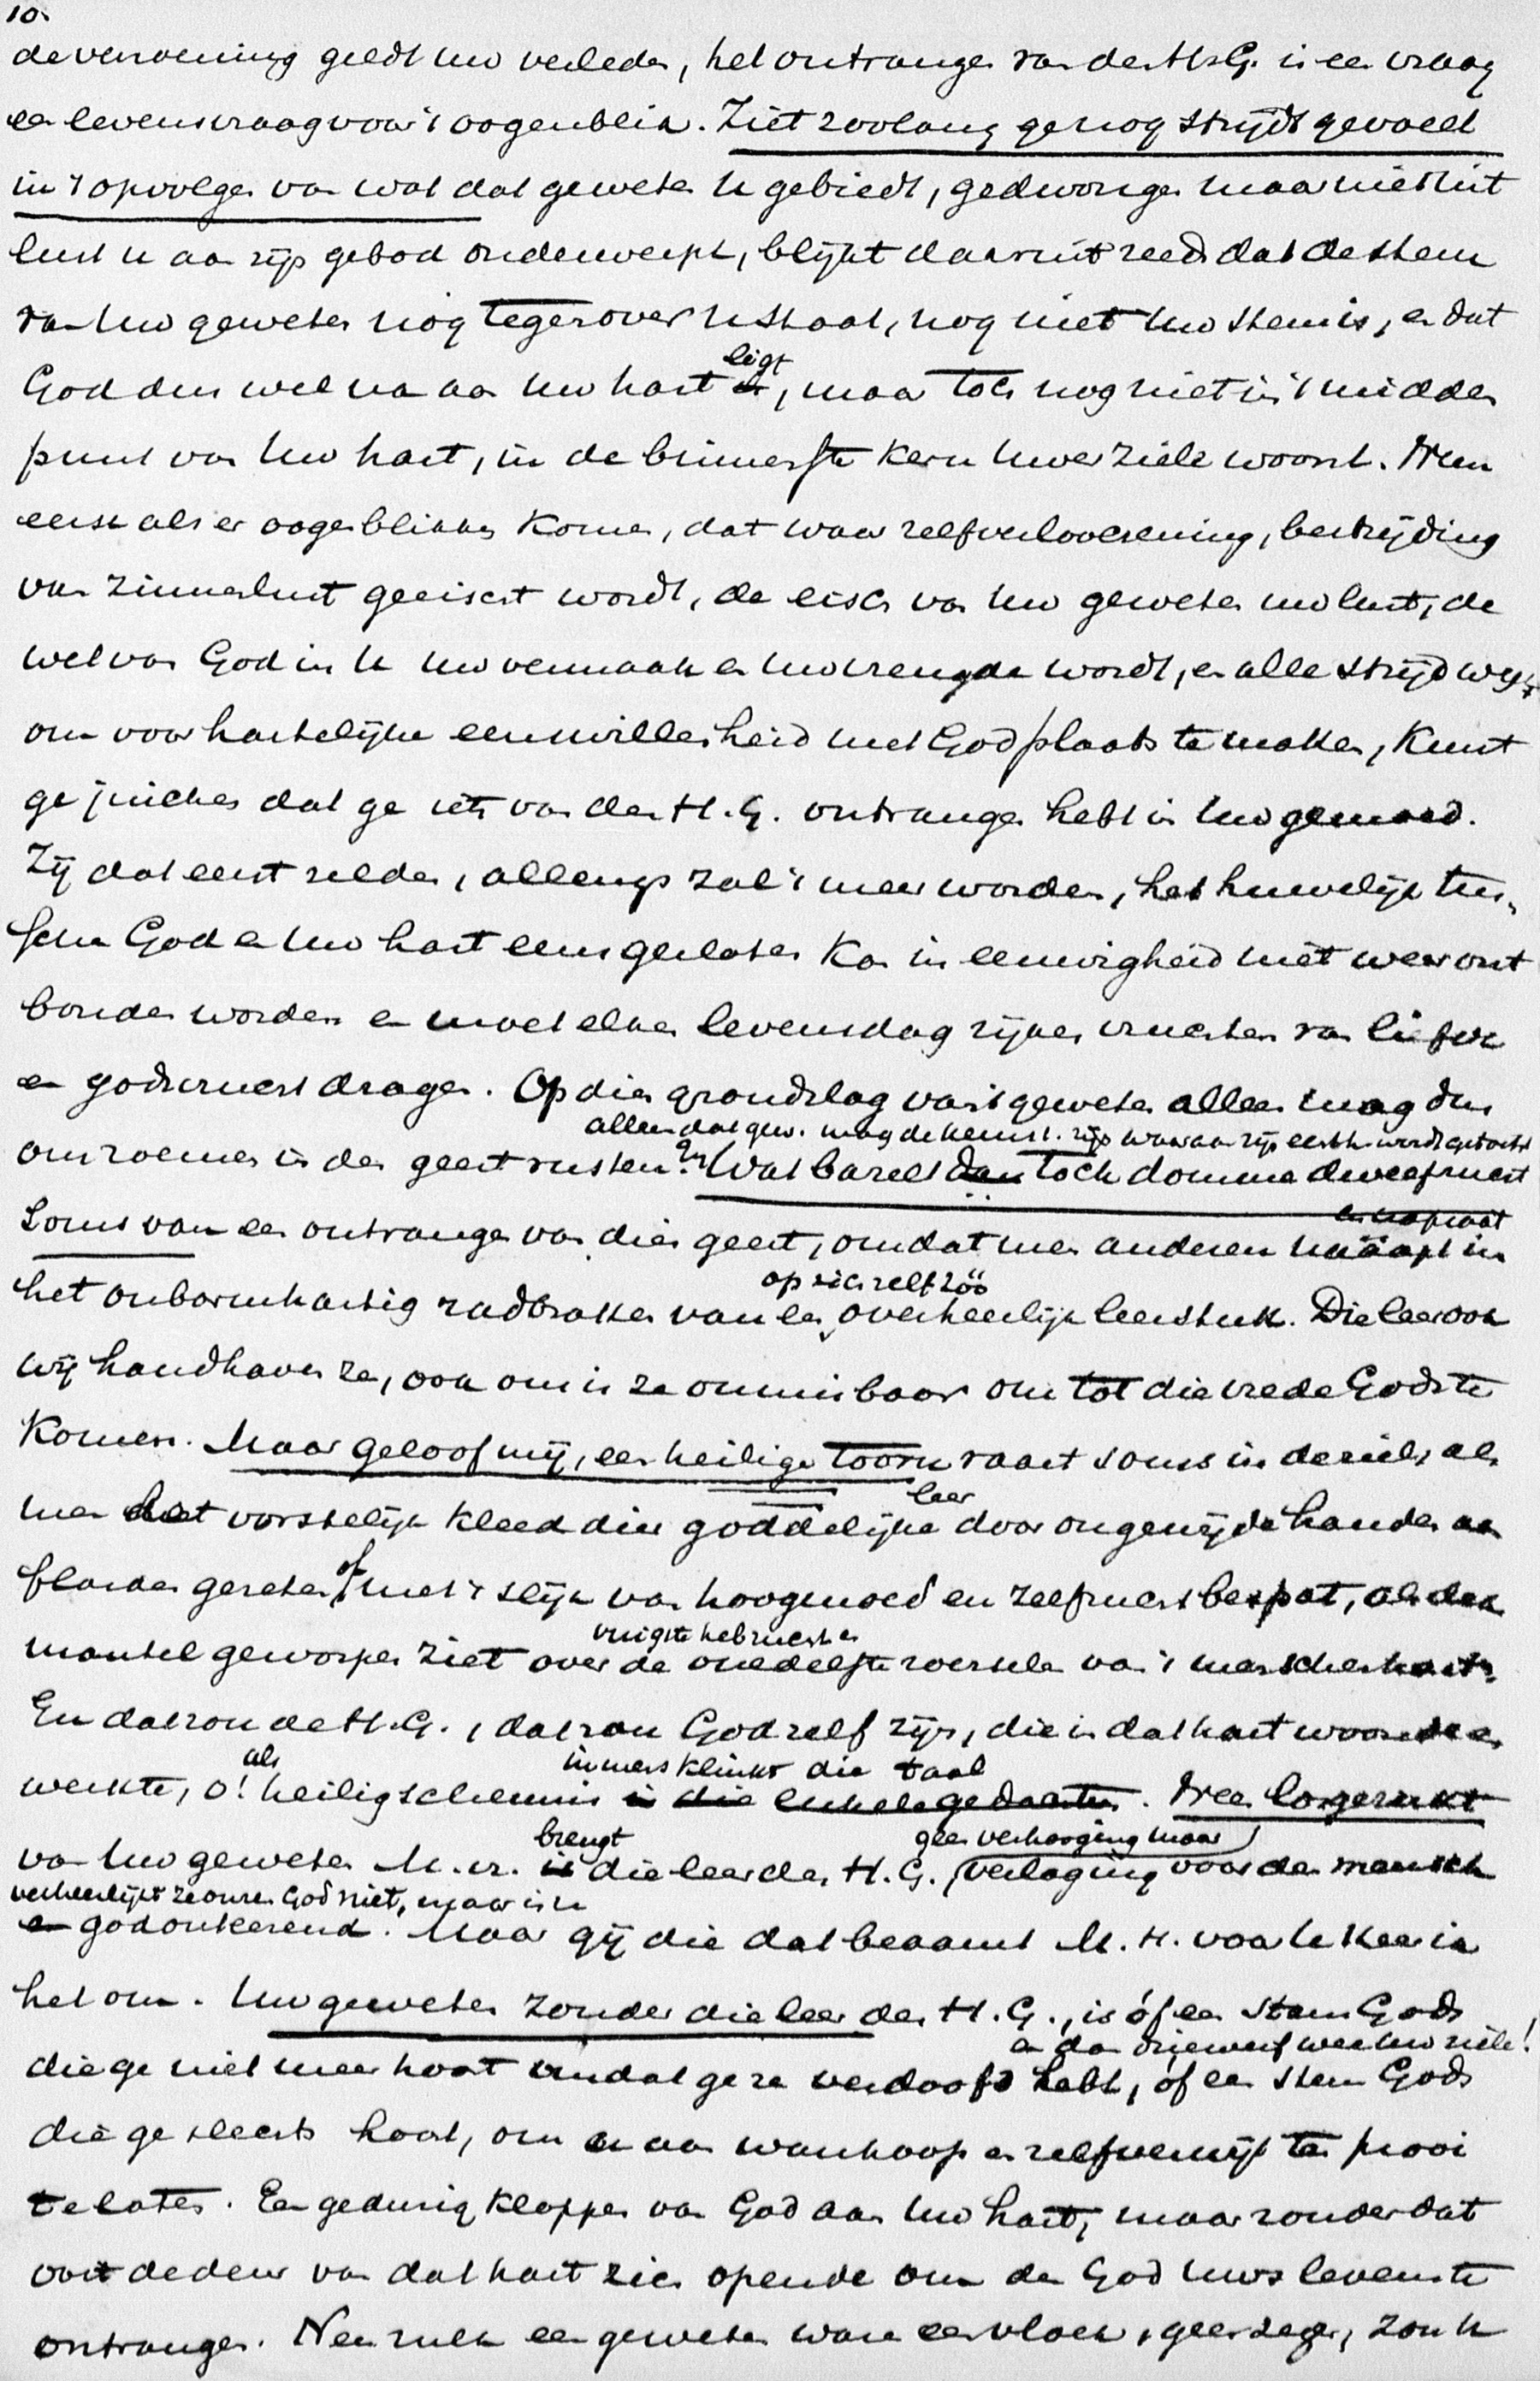 10.
de verzoening geldt uw verleden, het ontvangen van den H.G. is een vraag
een levensvraag voor 't oogenblik. Ziet zoolang ge nog strijdt gevoelt
in 't opvolgen van wat dat geweten U gebiedt, gedwongen maar niet uit
lust U aan zijn gebod onderwerpt, blijkt daaruit reeds dat de stem
van Uw geweten nog tegenover U staat, nog niet Uw stem is, en dat
ligt
God dus wel na aan Uw hart is, maar toch nog niet in 't midden
punt van Uw hart, in de binnenste kern Uwer ziele woont. Neen
eerst als er oogenblikken komen, dat waar zelfverloochening, bestrijding
van zinnenlust geeischt wordt, de eisch van Uw geweten uw lust, de
wet van God in U Uw vermaak en Uw vreugde wordt, en alle strijd wijkt
om voor hartelijke eenswillensheid met God plaats te maken, kunt
ge juichen dat ge iets van den H.G. ontvangen hebt in Uw gemoed.
Zij dat eerst zelden, allengs zal 't meer worden, het huwelijk tus-
schen God en Uw hart eens gesloten kan in eeuwigheid niet weer ont
bonden worden en moet elken levensdag zijne vruchten van liefde
en godsvrucht dragen. Op dien grondslag van 't geweten alleen mag dus
alleen dat gew. mag de kenst. zijn waaraan zijn echth. wordt getoetst
ons roemen in den geest rusten. En Wat bazelt dan toch domme dweepzucht
en napraat
soms van een ontvangen van dien geest, omdat men anderen naäapt in
op zich zelf zóó
het onbarmhartig radbraken van een overheerlijk leerstuk. Die leer ook
wij handhaven ze, ook ons is ze onmisbaar om tot die vrede Gods te
komen. Maar geloof mij, een heilige toorn vaart soms in de ziel, als
leer
men het vorstelijk kleed dier goddelijke door ongewijde handen aan
of
flarden gereten met 't slijk van hoogmoed en zelfzucht bespat, als een
vuigste hebzucht en
mantel geworpen ziet over de onedelste roerselen van 't menschenhart.
En dat zou de H.G., dat zou God zelf zijn, die in dat hart woonde en
als immers klinkt die taal
werkte, o! heiligschennis is die enkele gedachte. Neen losgerukt
brengt geen verhooging maar
van Uw geweten M.vr. is die leer den H.G., verlaging voor den mensch
verheerlijkt ze onzen God niet, maar is ze
en godonteerend. Maar gij die dat beaamt M.H. voor U keer ik
het om. Uw geweten zonder die leer den H.G., is óf een stem Gods
en dan driewerf wee Uw ziele!
die ge niet meer hoort omdat ge ze verdoofd hebt, óf een stem Gods
die ge slechts hoort, om U aan wanhoop en zelfverwijt ten prooi
te laten. Een gedurig kloppen van God aan Uw hart, maar zonder dat
ooit de deur van dat hart zich opende om den God Uws levens te
ontvangen. Neen zulk een geweten ware een vloek, geen zegen, zou U